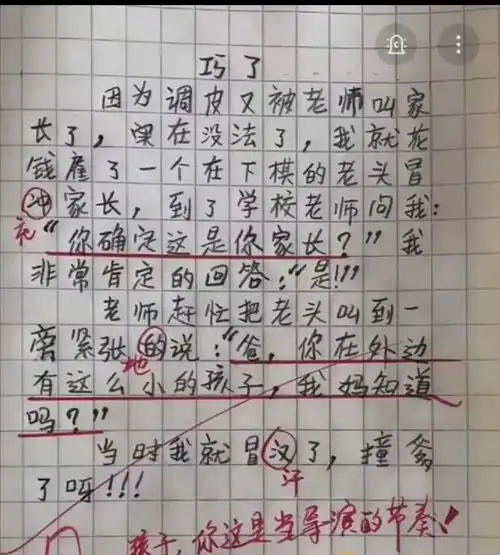 巧了
因为调皮又被老师叫家
长了，实在没法了，我就花
钱雇了一个在下棋的老头冒
冲家长，到了学校老师问我：
充
“你确定这是你家长？”我
非常肯定的回答：“是!!!
老师赶忙把老头叫到一
旁紧张的说：“爸，你在外边
地
有这么小的孩子，我妈知道
吗？”
当时我就冒汉了，撞爹
汗
了呀!!!
孩子，你这是当导演的节奏!